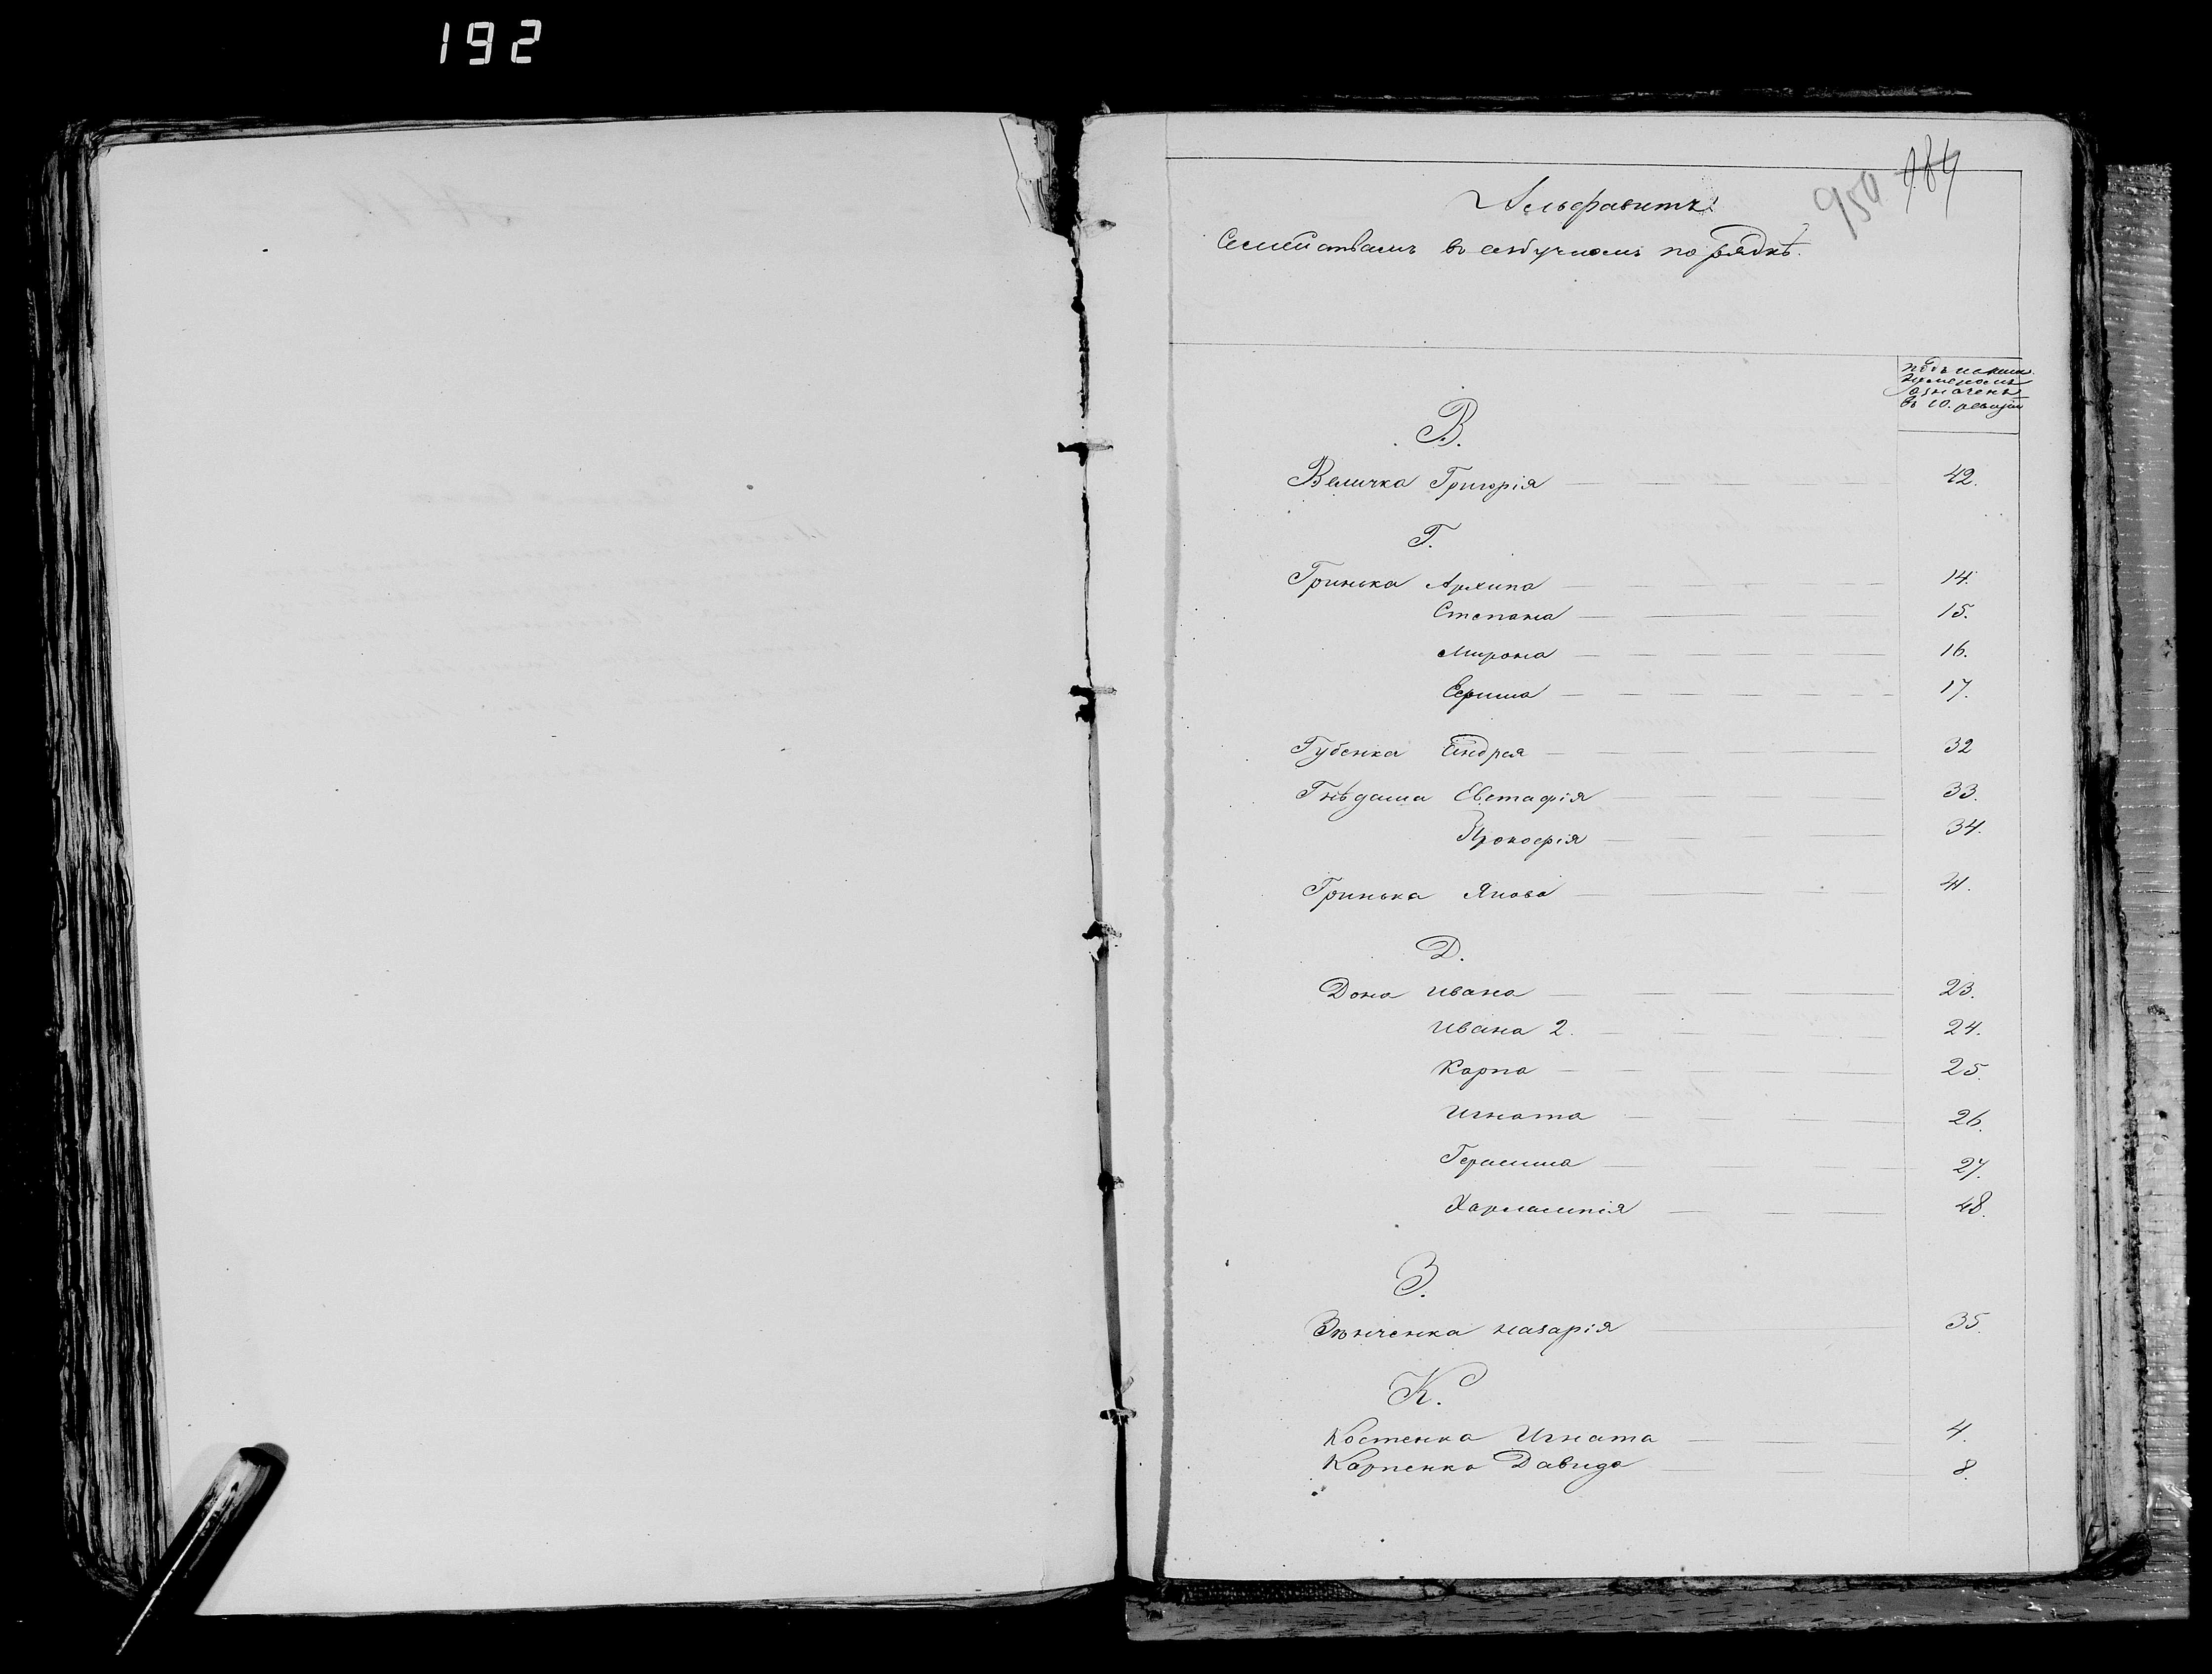 192
984
950
Альфавитъ
Семействамъ въ азбучномъ порядкѣ.
подъ какимъ
нумеромъ
значен
въ 10. ревизіи
В.
Величка Григорія 42.
Г.
Гринька Архипа 14.
Степана 15.
Мирона 16.
Ефима 17.
Губенка Андрея 32
Гнѣдаша Евстафія 33.
Прокофія 34.
Гринька Якова 41.
Д.
Дона Ивана 23.
Ивана 2. 24.
Карпа 25.
Игната 26.
Герасима 27.
Харлампія 48.
З.
Зѣнченка Назарія 35.
К.
Костенка Игната 4.
Карпенка Давида 8.